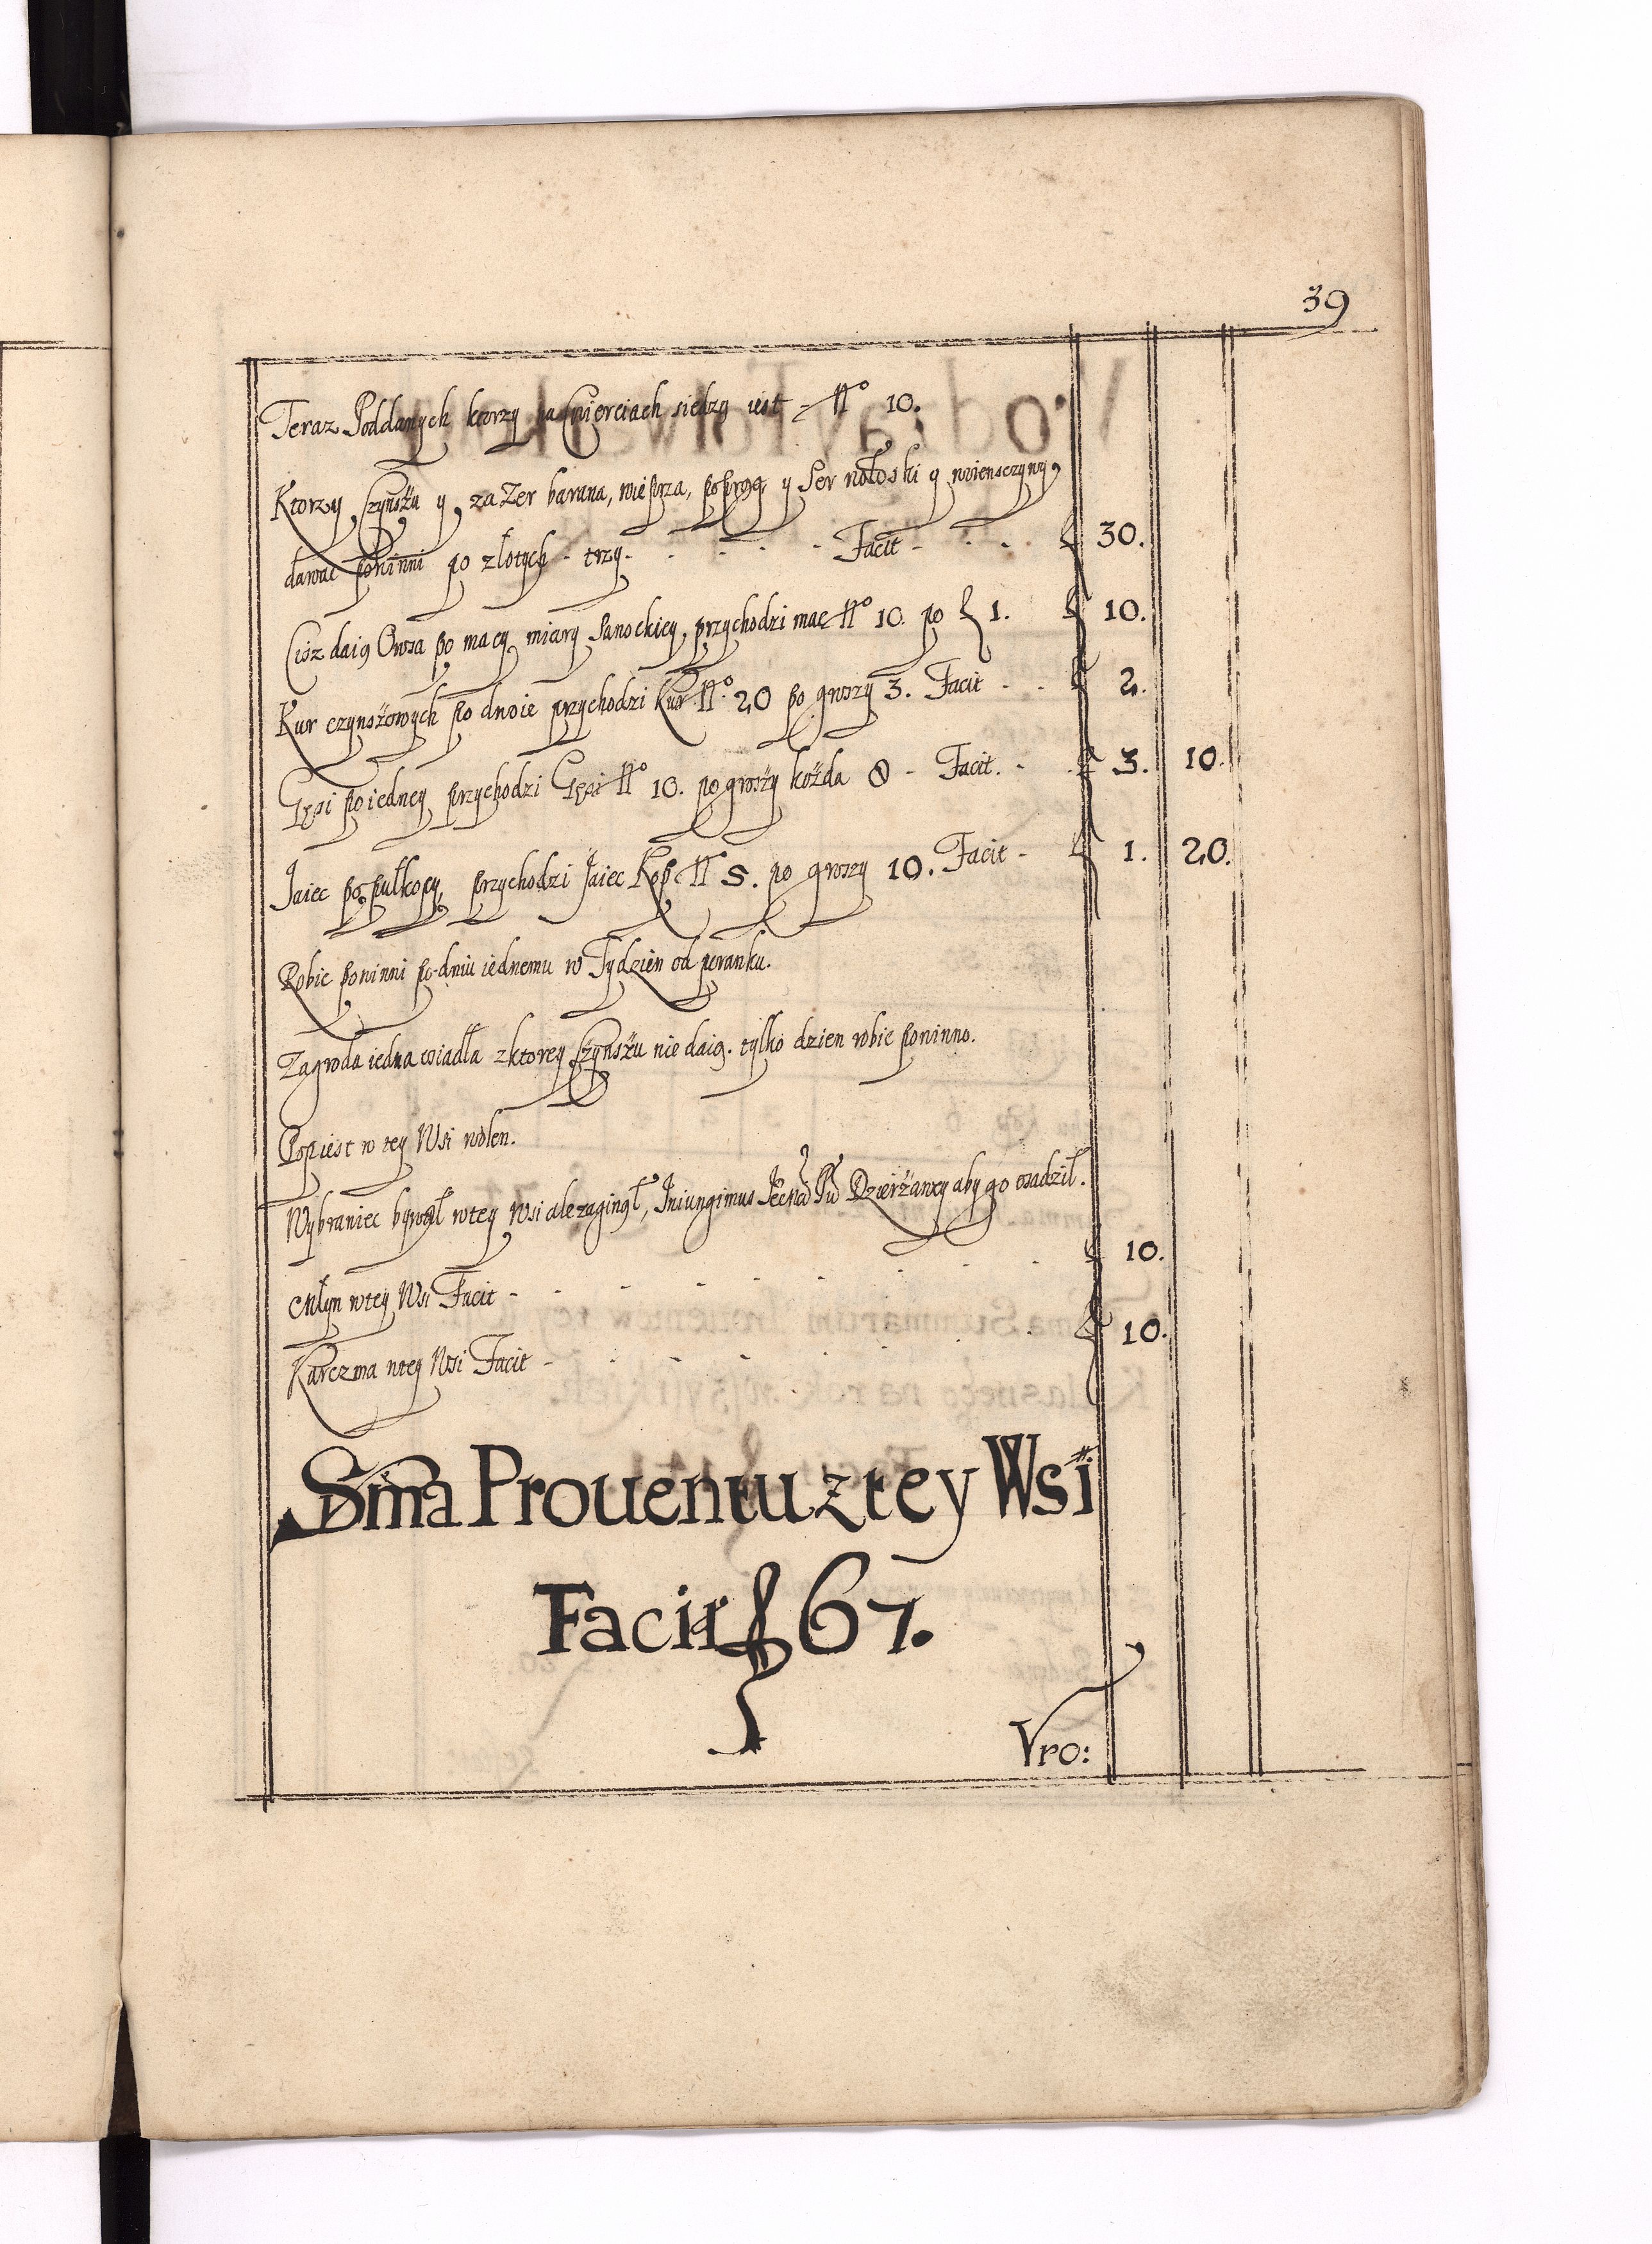 39
Teraz Poddanych ktorzy na Cwierciach siedzą iest - No 10.
Ktorzy Czynszu y za Zer barana, wieprza, poprąg y Ser wołoski y wienszczyny,
dawac powinni po złotych - trzy. - - - Facit - - - f 30.
Ciż daią Owsa po macy miary Sanockiey, przychodzi mac No 10. po f 1. f 10.
Kur czynszowych po dwoie przychodzi Kur No. 20 po groszy 3. Facit - - f 2.
Gęsi po iedney przychodzi Gęsi No 10. po groszy kożda Facit. - f 3. 10.
Jaiec po pułkopy, przychodzi Jaiec Kop No 5. po groszy 10. Facit - f 1. 20.
Robic powinni po dniu iednemu w Tydzien od poranku.
Zagroda iedna osiadła zktorey Czynszu nie daią. tylko dzien robic powinno.
Pop iest w tey Wsi wolen.
Wybraniec bywał wtey Wsi ale zaginął, Iniungimus Dzierżawcy aby go osadził.
Młyn wtey Wsi Facit - - - - - - f 10.
Karczma wtey Wsi Facit - - - - - f 10.
Sma Prouentu z tey Wsi
Facit f 67.
Vro: